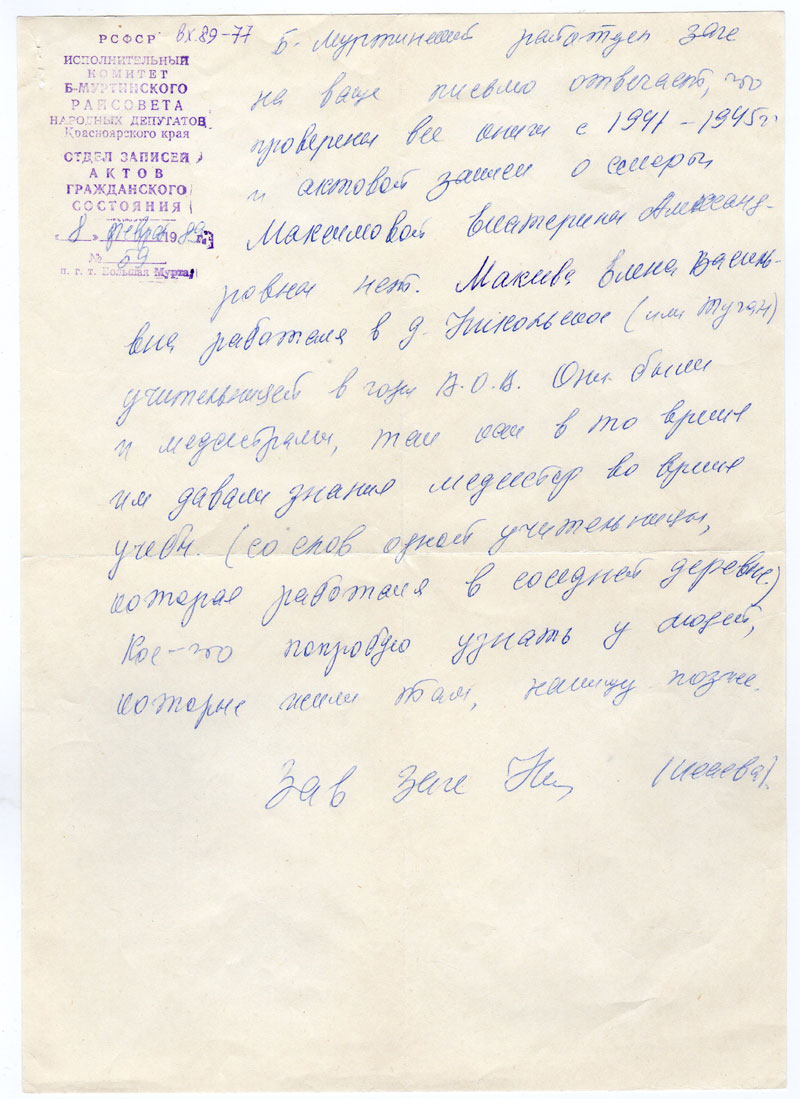 вх.89-77
РСФСР
ИСПОЛНИТЕЛЬНЫЙ
КОМИТЕТ
Б-МУРТИНСКОГО
РАЙСОВЕТА
НАРОДНЫХ ДЕПУТАТОВ
Красноярского края
ОТДЕЛ ЗАПИСЕЙ
АКТОВ
ГРАЖДАНСКОГО
СОСТОЯНИЯ
"8" февраля 1989 г.
№ 59
п. г. т. Большая Мурта
Б-Муртинский райотдел загс
на ваше письмо отвечает, что
проверены все книги с 1941-1945г
и актовой записи о смерти
Максимовой Екатерины Александ-
ровны нет. Макеева Елена Василь-
вна работала в д. Никольское (или Туган)
учительницей в годы В.О.В. Они были
и медсестрами, так как в то время
им давали знание медсестер во время
учебы. (со слов одной учительницы,
которая работала в соседней деревне.)
Кое-что попробую узнать у людей,
которые жили там, напишу позже.
Зав загс (Исаева).